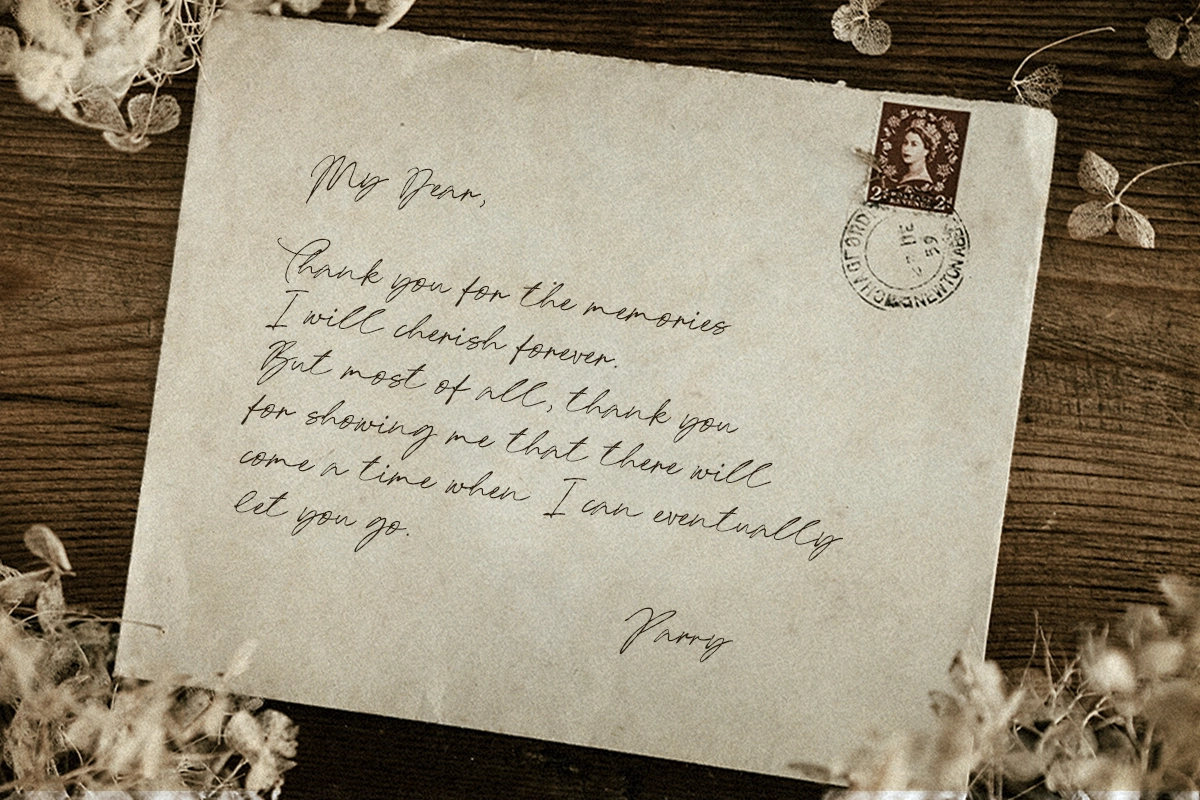 My Dear,
Thank you for the memories
I will cherish forever.
But most of all, thank you
for showing me that there will
come a time when I can eventually
let you go.
Parry
2d 2d
DE
59
NEWTON ABB